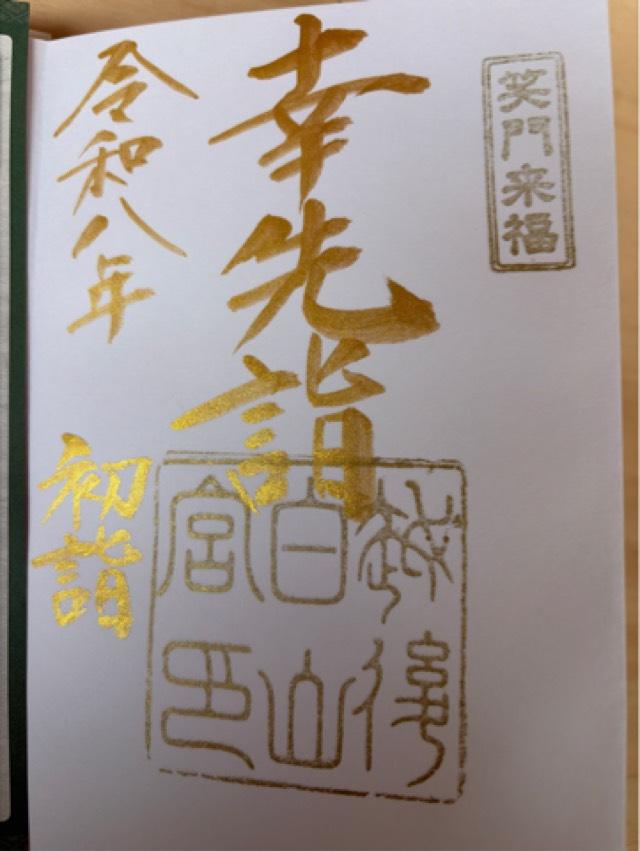 笑門来福
幸先詣
越後
白山
宮印
令和八年
初詣